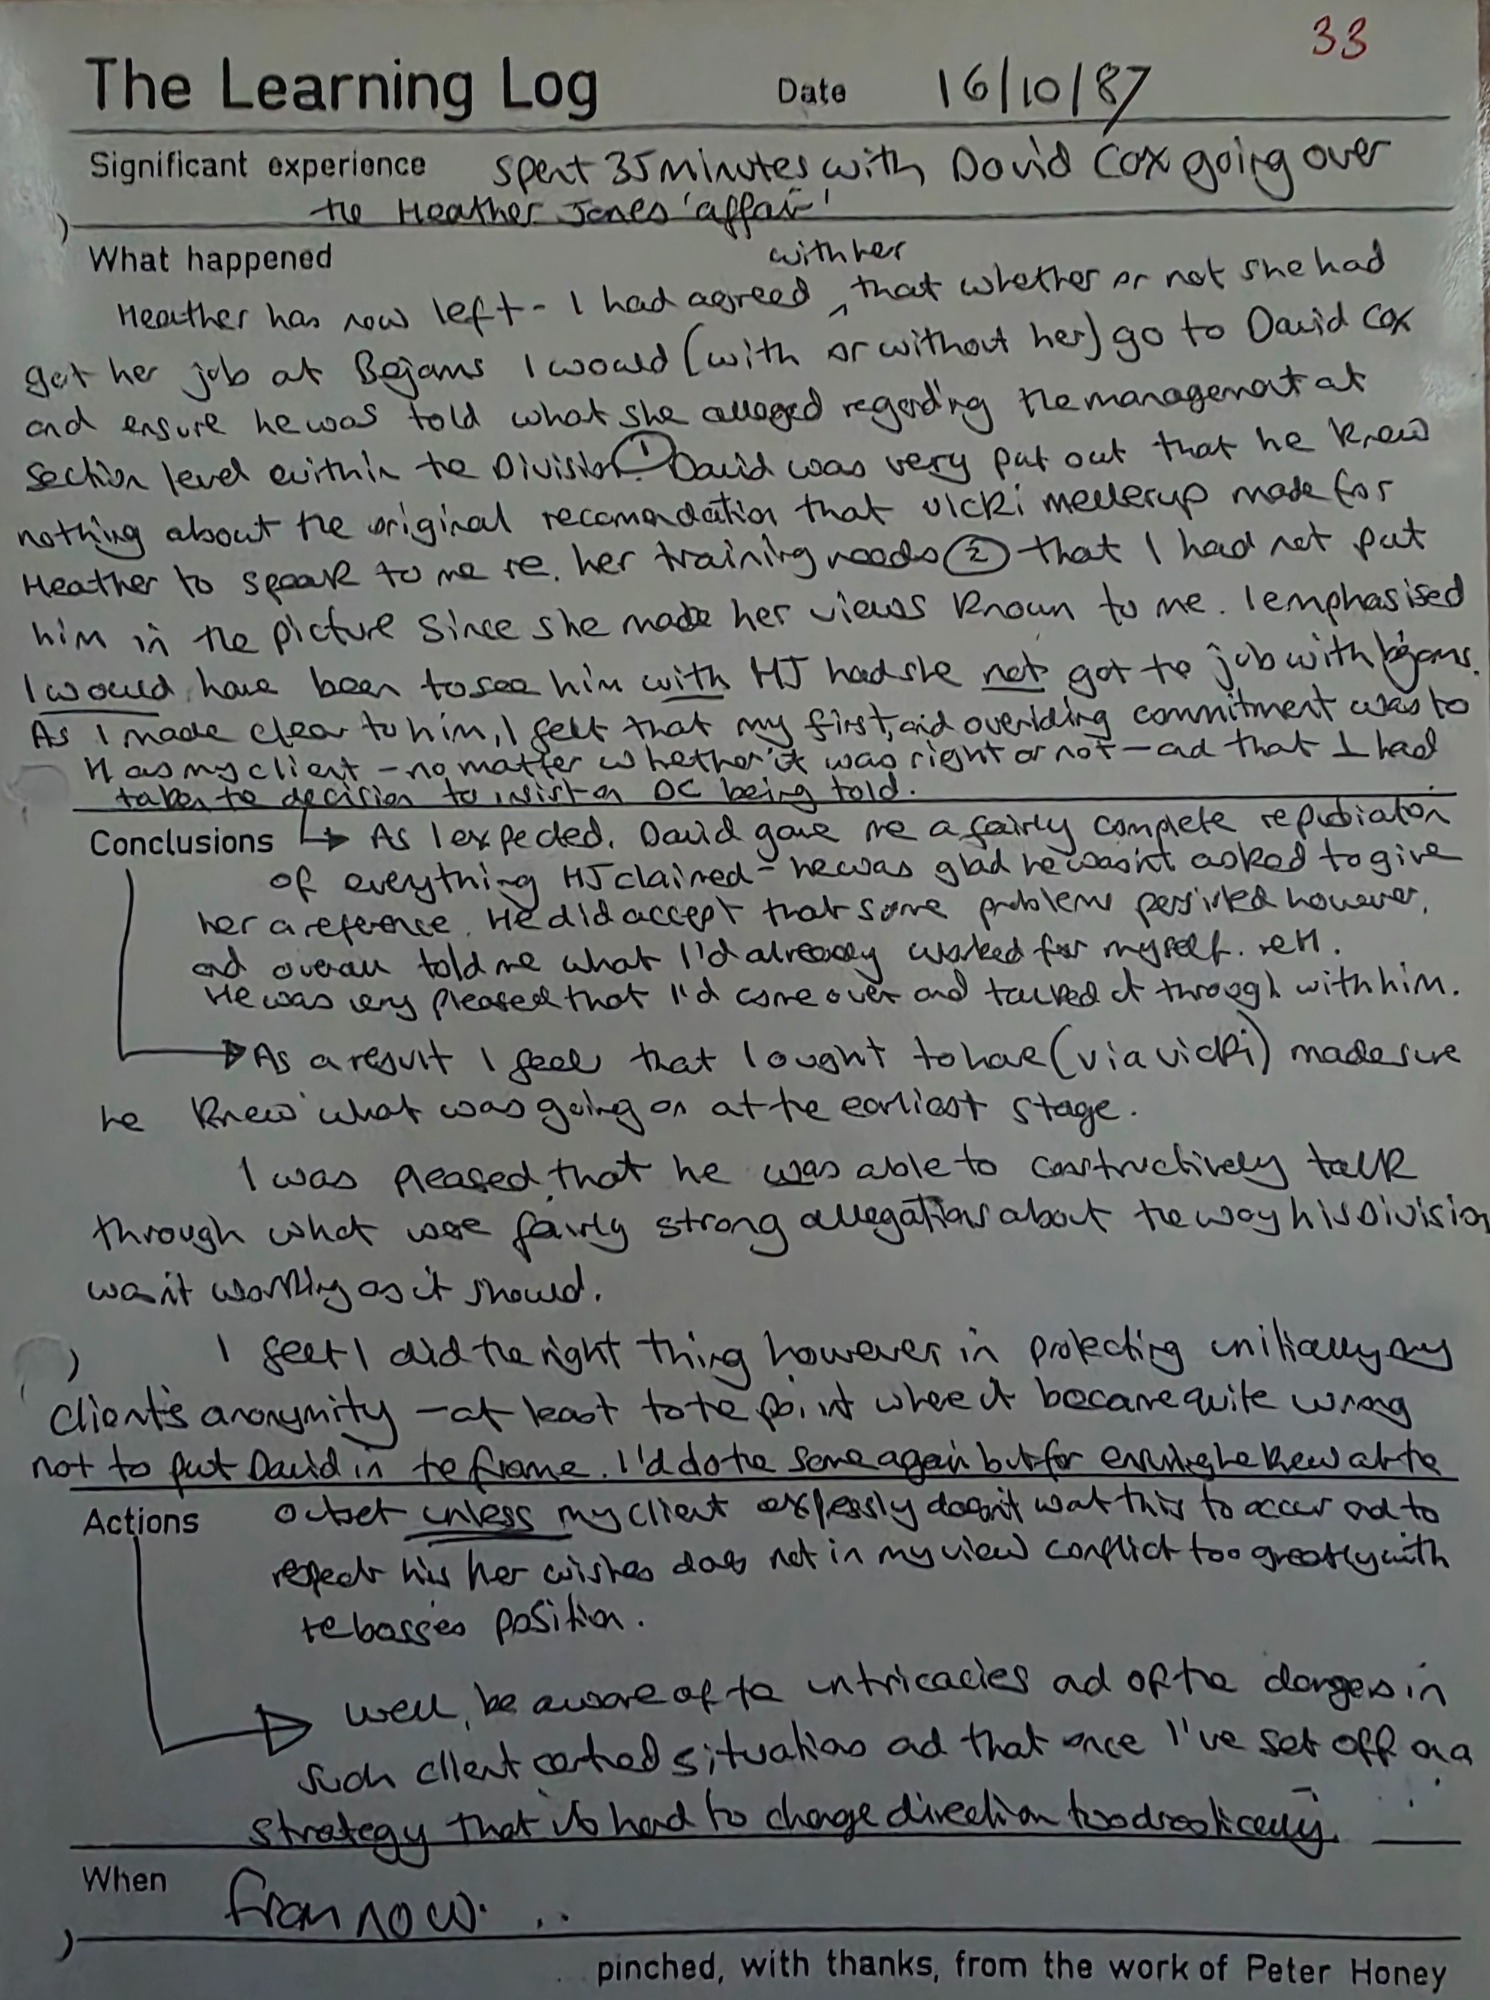 33
The Learning Log Date 16/10/87
Significant experience Spent 35 minutes with David Cox going over
the Heather Jones 'affair'
What happened with her
Heather has now left - I had agreed ^ that whether or not she had
got her job at Bejams I would (with or without her) go to David Cox
and ensure he was told what she alleged regarding the management at
Section level within the Division. ① David was very put out that he knew
nothing about the original recomendation that Vicki Mellerup made for
Heather to speak to me re. her training needs ② that I had not put
him in the picture since she made her views known to me. I emphasised
I would have been to see him with HJ had she not got the job with bejams.
As I made clear to him, I felt that my first, and overiding commitment was to
H as my client - no matter whether it was right or not - and that I had
taken the decision to insist on DC being told.
Conclusions → As I expected, David gave me a fairly complete repudiation
of everything HJ claimed - he was glad he wasn't asked to give
her a reference. He did accept that some problems persisted however,
and overall told me what I'd already worked for myself. re H.
He was very pleased that I'd come over and talked it through with him.
→ As a result I feel that I ought to have (via Vicki) made sure
he knew what was going on at the earliest stage.
I was pleased that he was able to constructively talk
through what were fairly strong allegations about the way his Division
wasn't working as it should.
I feel I did the right thing however in protecting initially my
client's anonymity - at least to the point where it became quite wrong
not to put David in the frame. I'd do the same again but for ensuring he knew at the
Actions outset unless my client expressly doesn't want this to occur and to
respect his her wishes does not in my view conflict too greatly with
the bosses position.
→ Well, be aware of the intricacies and of the dangers in
such client centred situations and that once I've set off on a
strategy that it's hard to change direction too drastically.
When From now...
pinched, with thanks, from the work of Peter Honey